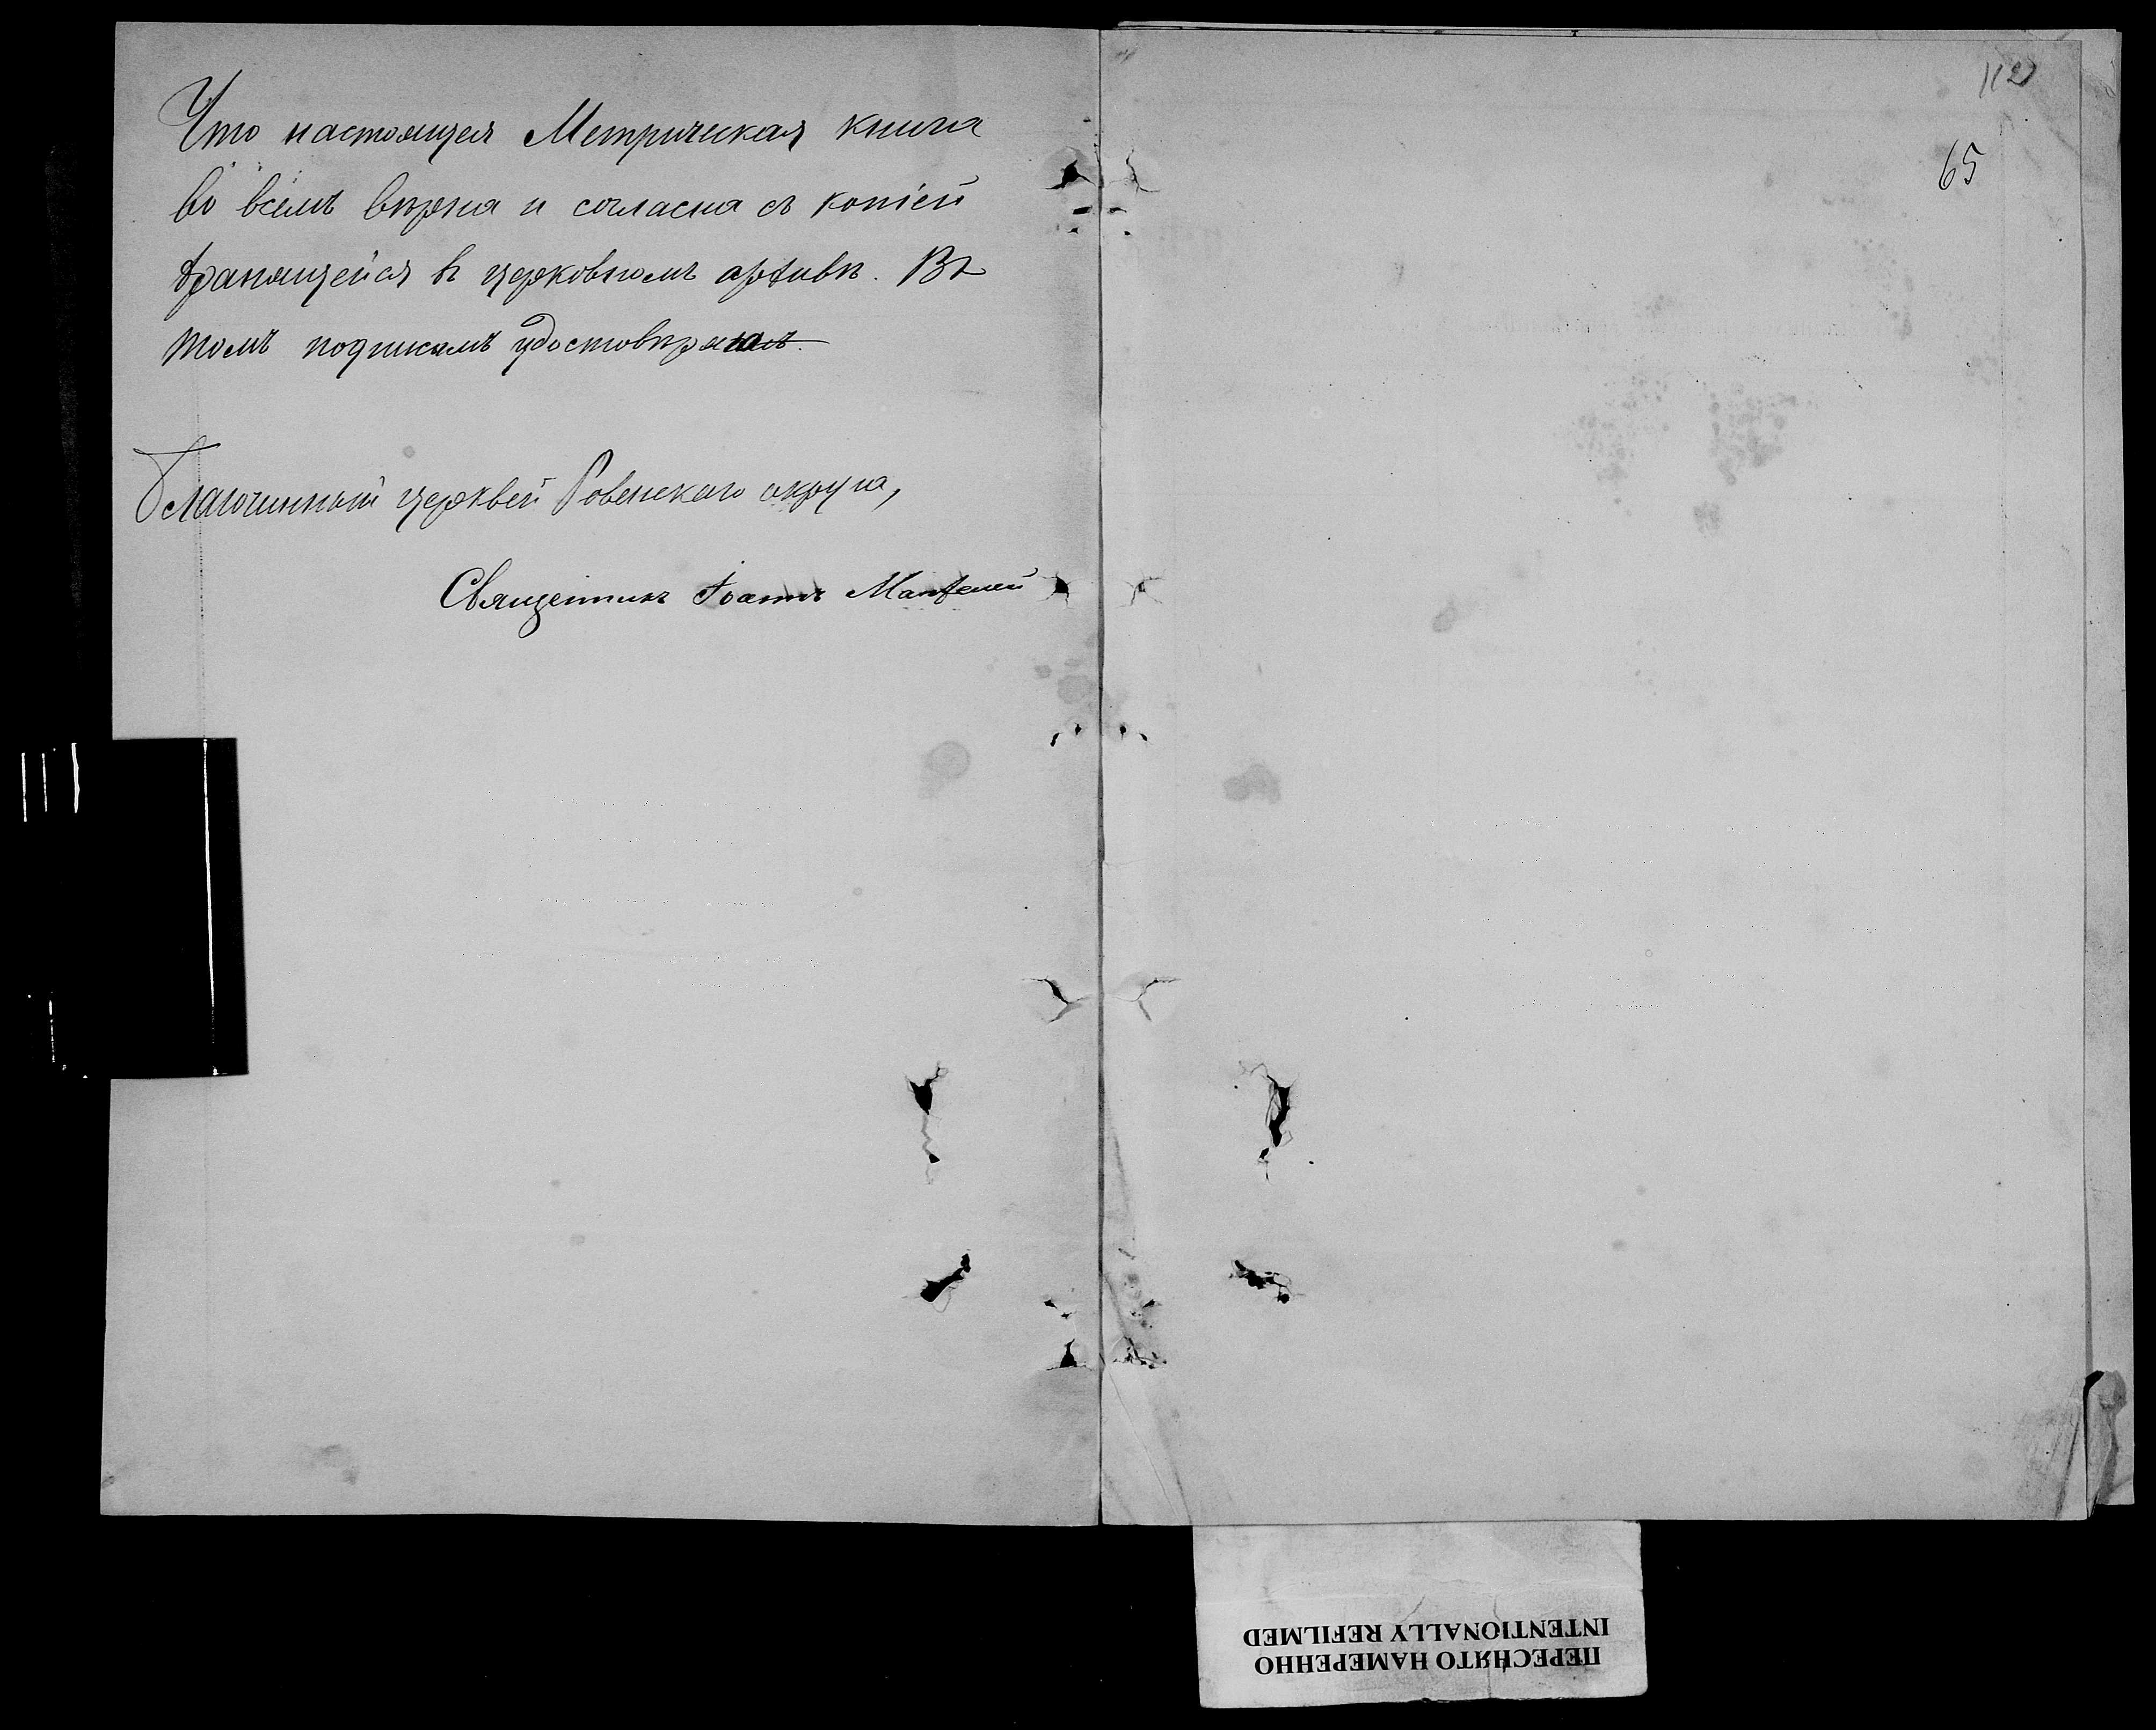 Что настоящая Метрическая книга
во всемъ вѣрна и согласна съ копіей
хранящейся въ церковномъ архивѣ. Въ
томъ подписомъ удостовѣряю.
Благочинный церквей Ровенскаго округа,
Священникъ Іоаннъ
112
65
ПЕРЕСНЯТО НАМЕРЕННО
INTENTIONALLY REFILMED